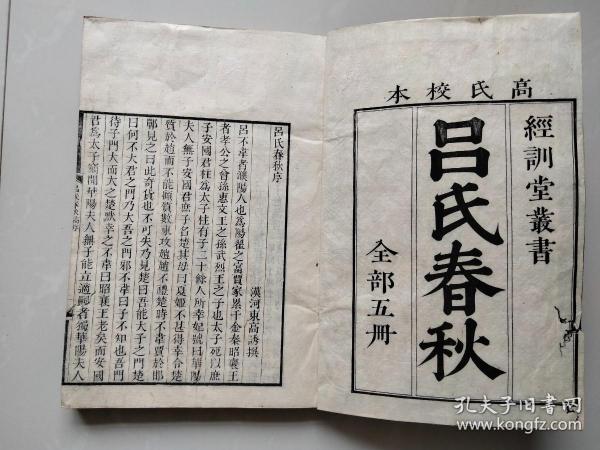 高氏校本
經訓堂叢書
呂氏春秋
全部五冊
呂氏春秋序
漢河東高誘撰
呂不韋者濮陽人也為陽翟之富賈家累千金秦昭襄王
者孝公之曾孫惠文王之孫武烈王之子也太子死以庶
子安國君柱為太子柱有子二十餘人所幸妃號曰華陽
夫人無子安國君庶子名楚其母曰夏姬不甚得幸令楚
質於趙而不能顧質數東攻趙趙不禮楚時不韋賈於邯
鄲見之曰此奇貨也不可失乃見楚曰吾能大子之門楚
曰何不大君之門乃大吾之門邪不韋曰子不知也吾門
待子門大而大之楚默幸之不韋曰昭襄王老矣而安國
君為太子竊聞華陽夫人無子能立適嗣者獨華陽夫人
呂氏春秋高序
孔夫子旧书网
www.kongfz.com